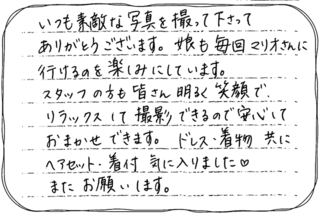 いつも素敵な写真を撮って下さって
ありがとうございます。娘も毎回マリオさんに
行けるのを楽しみにしています。
スタッフの方も皆さん明るく笑顔で、
リラックスして撮影できるので安心して
おまかせできます。ドレス・着物 共に
ヘアセット・着付 気に入りました♡
またお願いします。